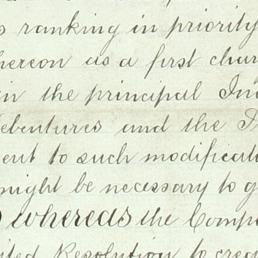 s ranking in priority
hereon as a first char
in the principal In
ebentures and the
ent to such modificati
might be necessary to g
whereas the Compa
ited Resolution to crea